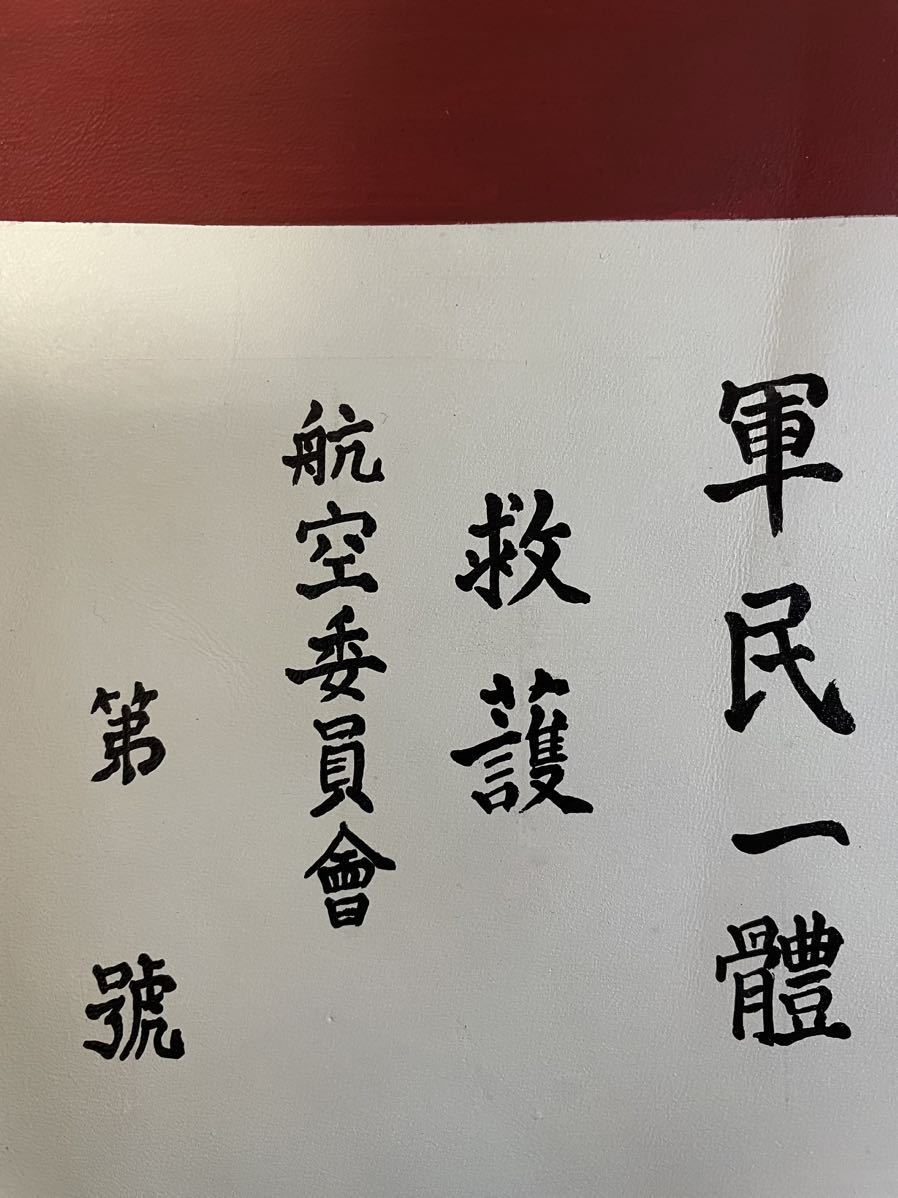 軍民一體
救護
航空委員會
第 號